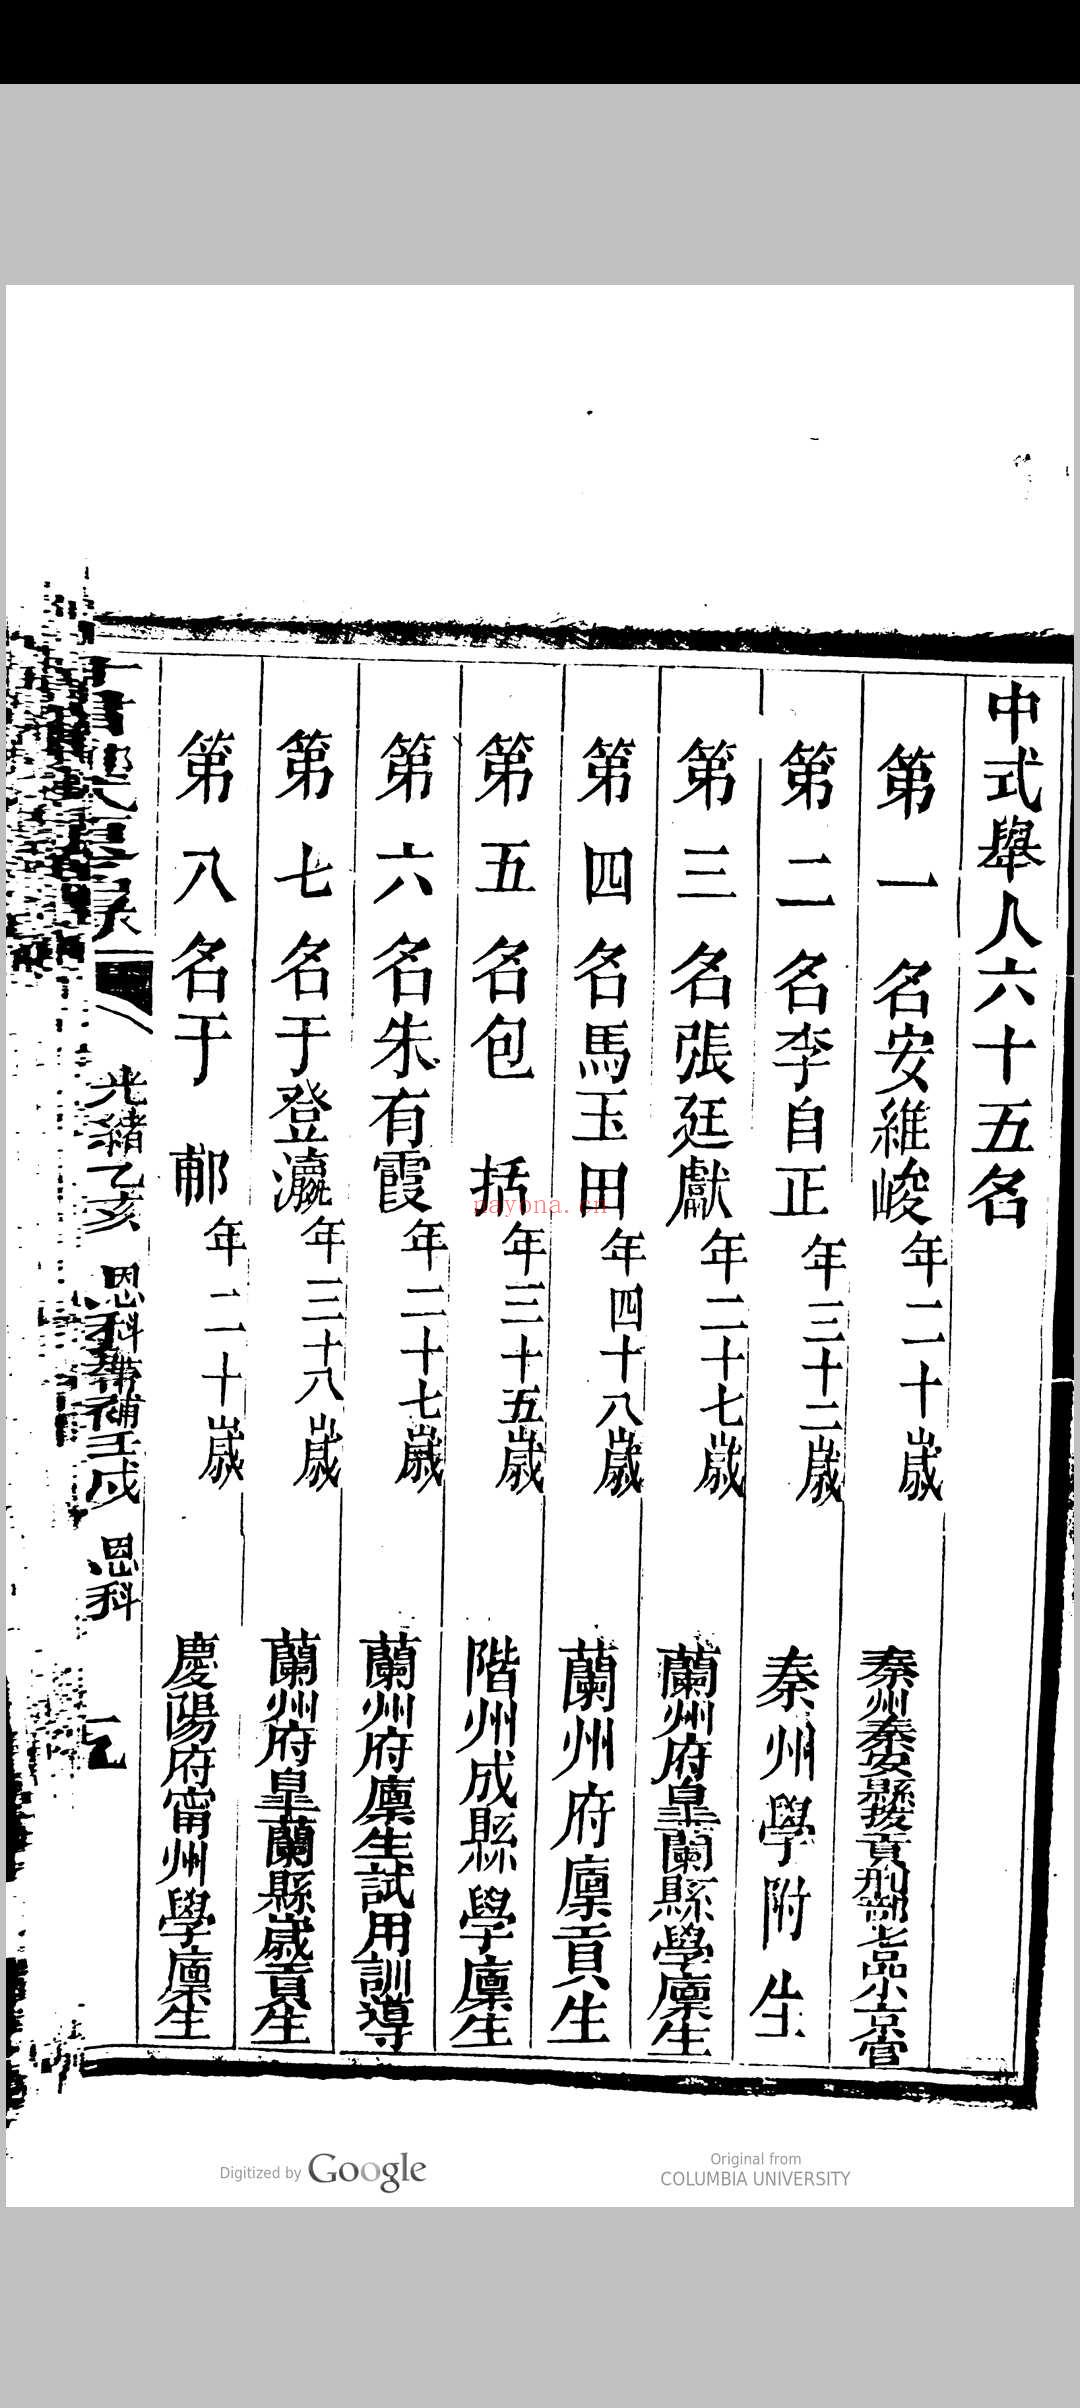 中式舉人六十五名
第一名安維峻年二十歲 秦州秦安縣拔貢刑部七品小京官
第二名李自正年三十二歲 秦州學附生
第三名張廷獻年二十七歲 蘭州府皐蘭縣學廩生
第四名馬玉田年四十八歲 蘭州府廩貢生
第五名包 括年三十五歲 階州成縣學廩生
第六名朱有霞年二十七歲 蘭州府廩生試用訓導
第七名于登瀛年三十八歲 蘭州府皐蘭縣歲貢生
第八名于 郙年二十歲 慶陽府甯州學廩生
光緒乙亥 恩科帶補壬戌 恩科
nayona.cn
Digitized by Google
Original from
COLUMBIA UNIVERSITY